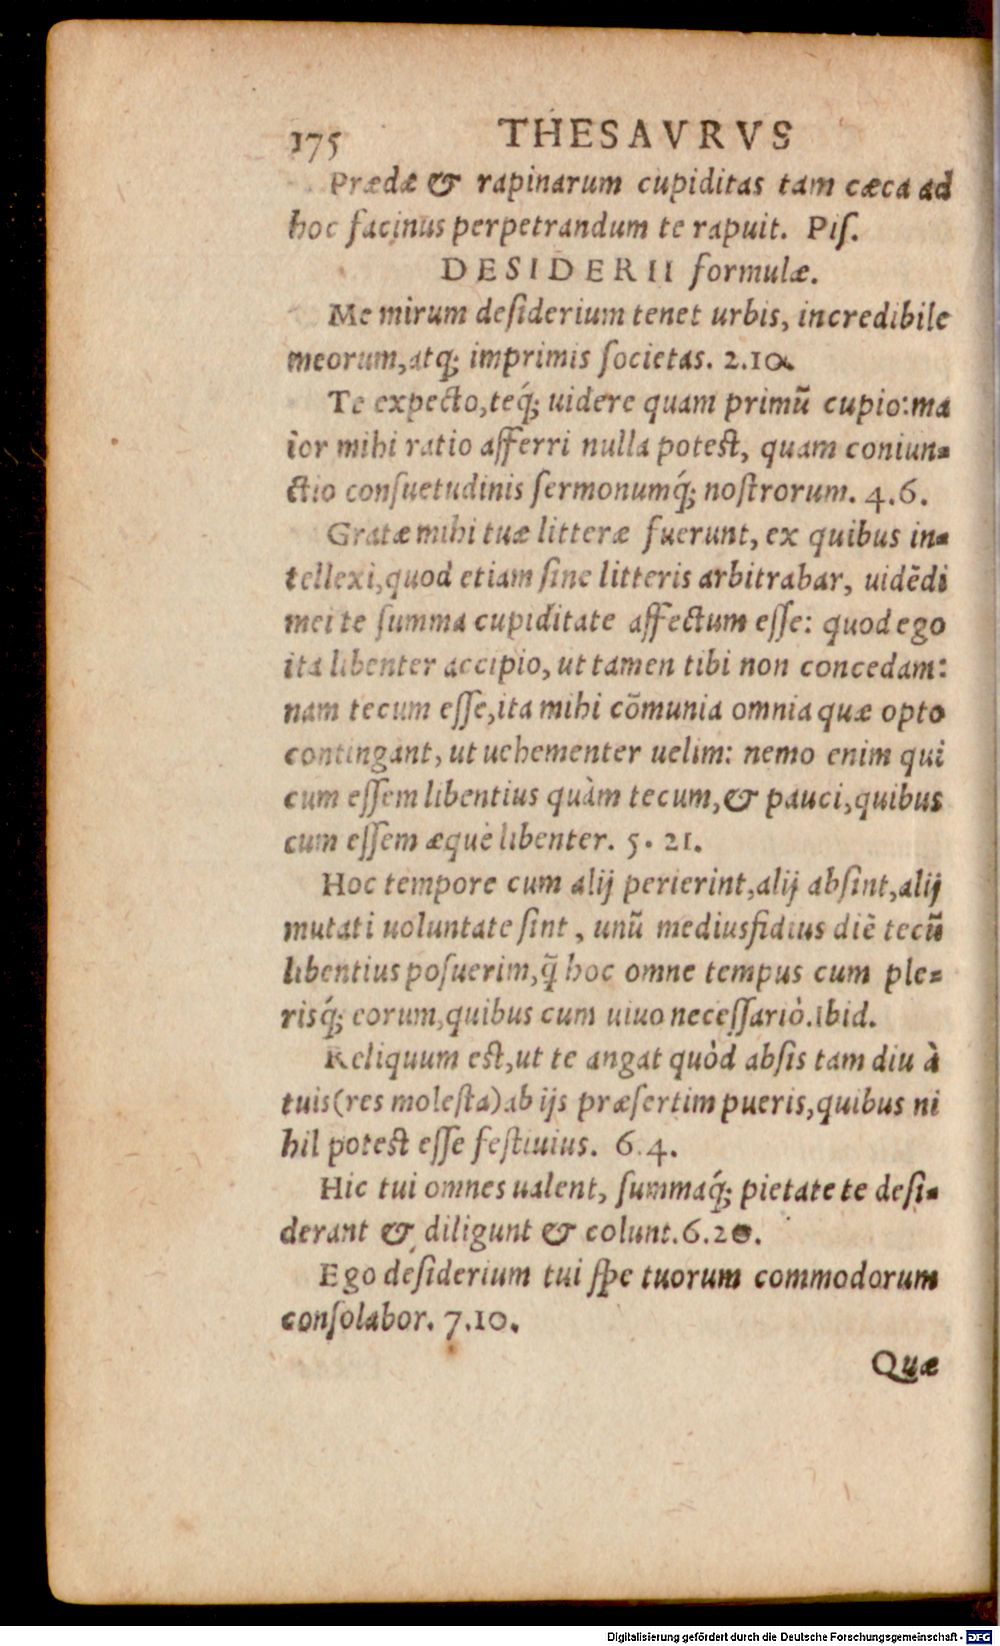 175 THESAVRVS
Prædæ & rapinarum cupiditas tam cæca ad
hoc facinus perpetrandum te rapuit. Piſ.
DESIDERII formulæ.
Me mirum deſiderium tenet urbis, incredibile
meorum, atq́; imprimis ſocietas. 2.10.
Te expecto, teq́; uidere quam primū cupio: ma
ior mihi ratio afferri nulla poteſt, quam coniun-
ctio conſuetudinis ſermonumq́; noſtrorum. 4.6.
Gratæ mihi tuæ litteræ fuerunt, ex quibus in-
tellexi, quod etiam ſine litteris arbitrabar, uidēdi
mei te ſumma cupiditate affectum eſſe: quod ego
ita libenter accipio, ut tamen tibi non concedam:
nam tecum eſſe, ita mihi cōmunia omnia quæ opto
contingant, ut uehementer uelim: nemo enim qui
cum eſſem libentius quàm tecum, & pauci, quibus
cum eſſem æquè libenter. 5. 21.
Hoc tempore cum alij perierint, alij abſint, alij
mutati uoluntate ſint, unū mediusfidius diē tecū
libentius poſuerim, q̃ hoc omne tempus cum ple-
risq́; eorum, quibus cum uiuo neceſſariò. Ibid.
Reliquum eſt, ut te angat quòd absis tam diu à
tuis (res moleſta) ab ijs præſertim pueris, quibus ni
hil poteſt eſſe feſtiuius. 6.4.
Hic tui omnes ualent, ſummaq́; pietate te deſi-
derant & diligunt & colunt. 6.20.
Ego deſiderium tui ſpe tuorum commodorum
conſolabor. 7.10.
Quæ
Digitalisierung gefördert durch die Deutsche Forschungsgemeinschaft - DFG